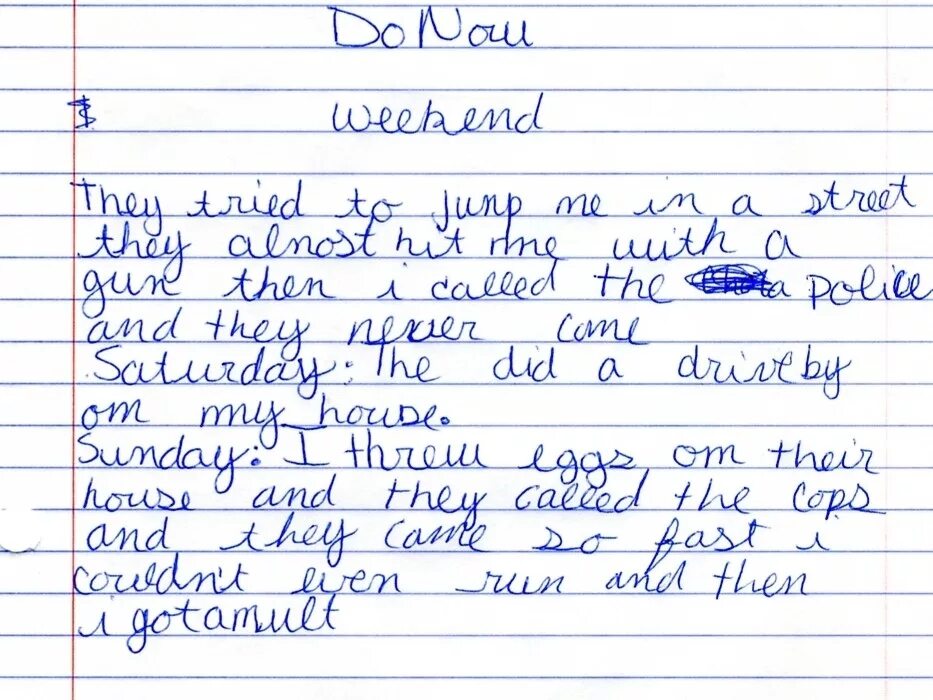 Do Now
Weekend
They tried to jump me in a street
they almost hit me with a
gun then i called the police
and they never come
Saturday: The did a driveby
on my house.
Sunday: I threw eggs on their
house and they called the cops
and they came so fast i
couldn't even run and then
i got a mult